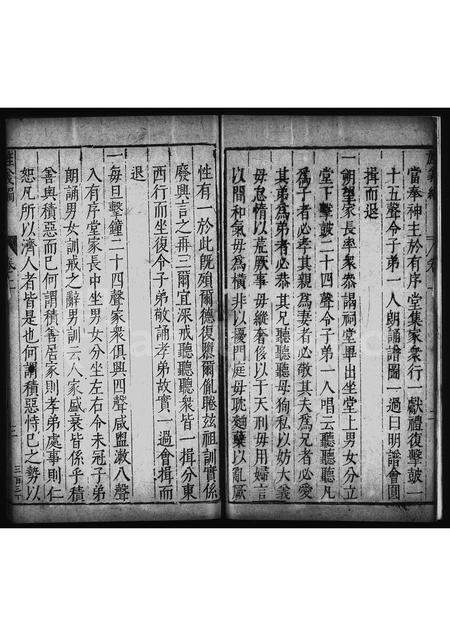 當奉神主於有序堂集家衆行一獻禮復擊鼓一
十五聲令子弟一人朗誦譜圖一過曰明譜會圓
揖而退
一朔望家長率衆恭謁祠堂畢出坐堂上男女分立
堂下擊鼓二十四聲令子弟一人唱云聽聽聽凡
爲子者必孝其親爲妻者必敬其夫爲兄者必愛
其弟爲弟者必恭其兄聽聽聽毋徇私以妨大義
毋怠惰以荒厥事毋縱奢侈以干天刑毋用婦言
以間和氣毋爲橫非以擾門庭毋耽麯糵以亂厥
性有一於此既殞爾德復隳爾胤睠兹祖訓實係
廢興言之再三爾宜深戒聽聽聽衆皆一揖分東
西行而坐復令子弟敬誦孝弟故實一過會揖而
退
一每旦擊鐘二十四聲家衆俱興四聲咸盥漱八聲
入有序堂家長中坐男女分坐左右令未冠子弟
朗誦男女訓戒之辭男訓云人家盛衰皆係乎積
善與積惡而已何謂積善居家則孝弟處事則仁
恕凡所以濟人者皆是也何謂積惡恃己之勢以